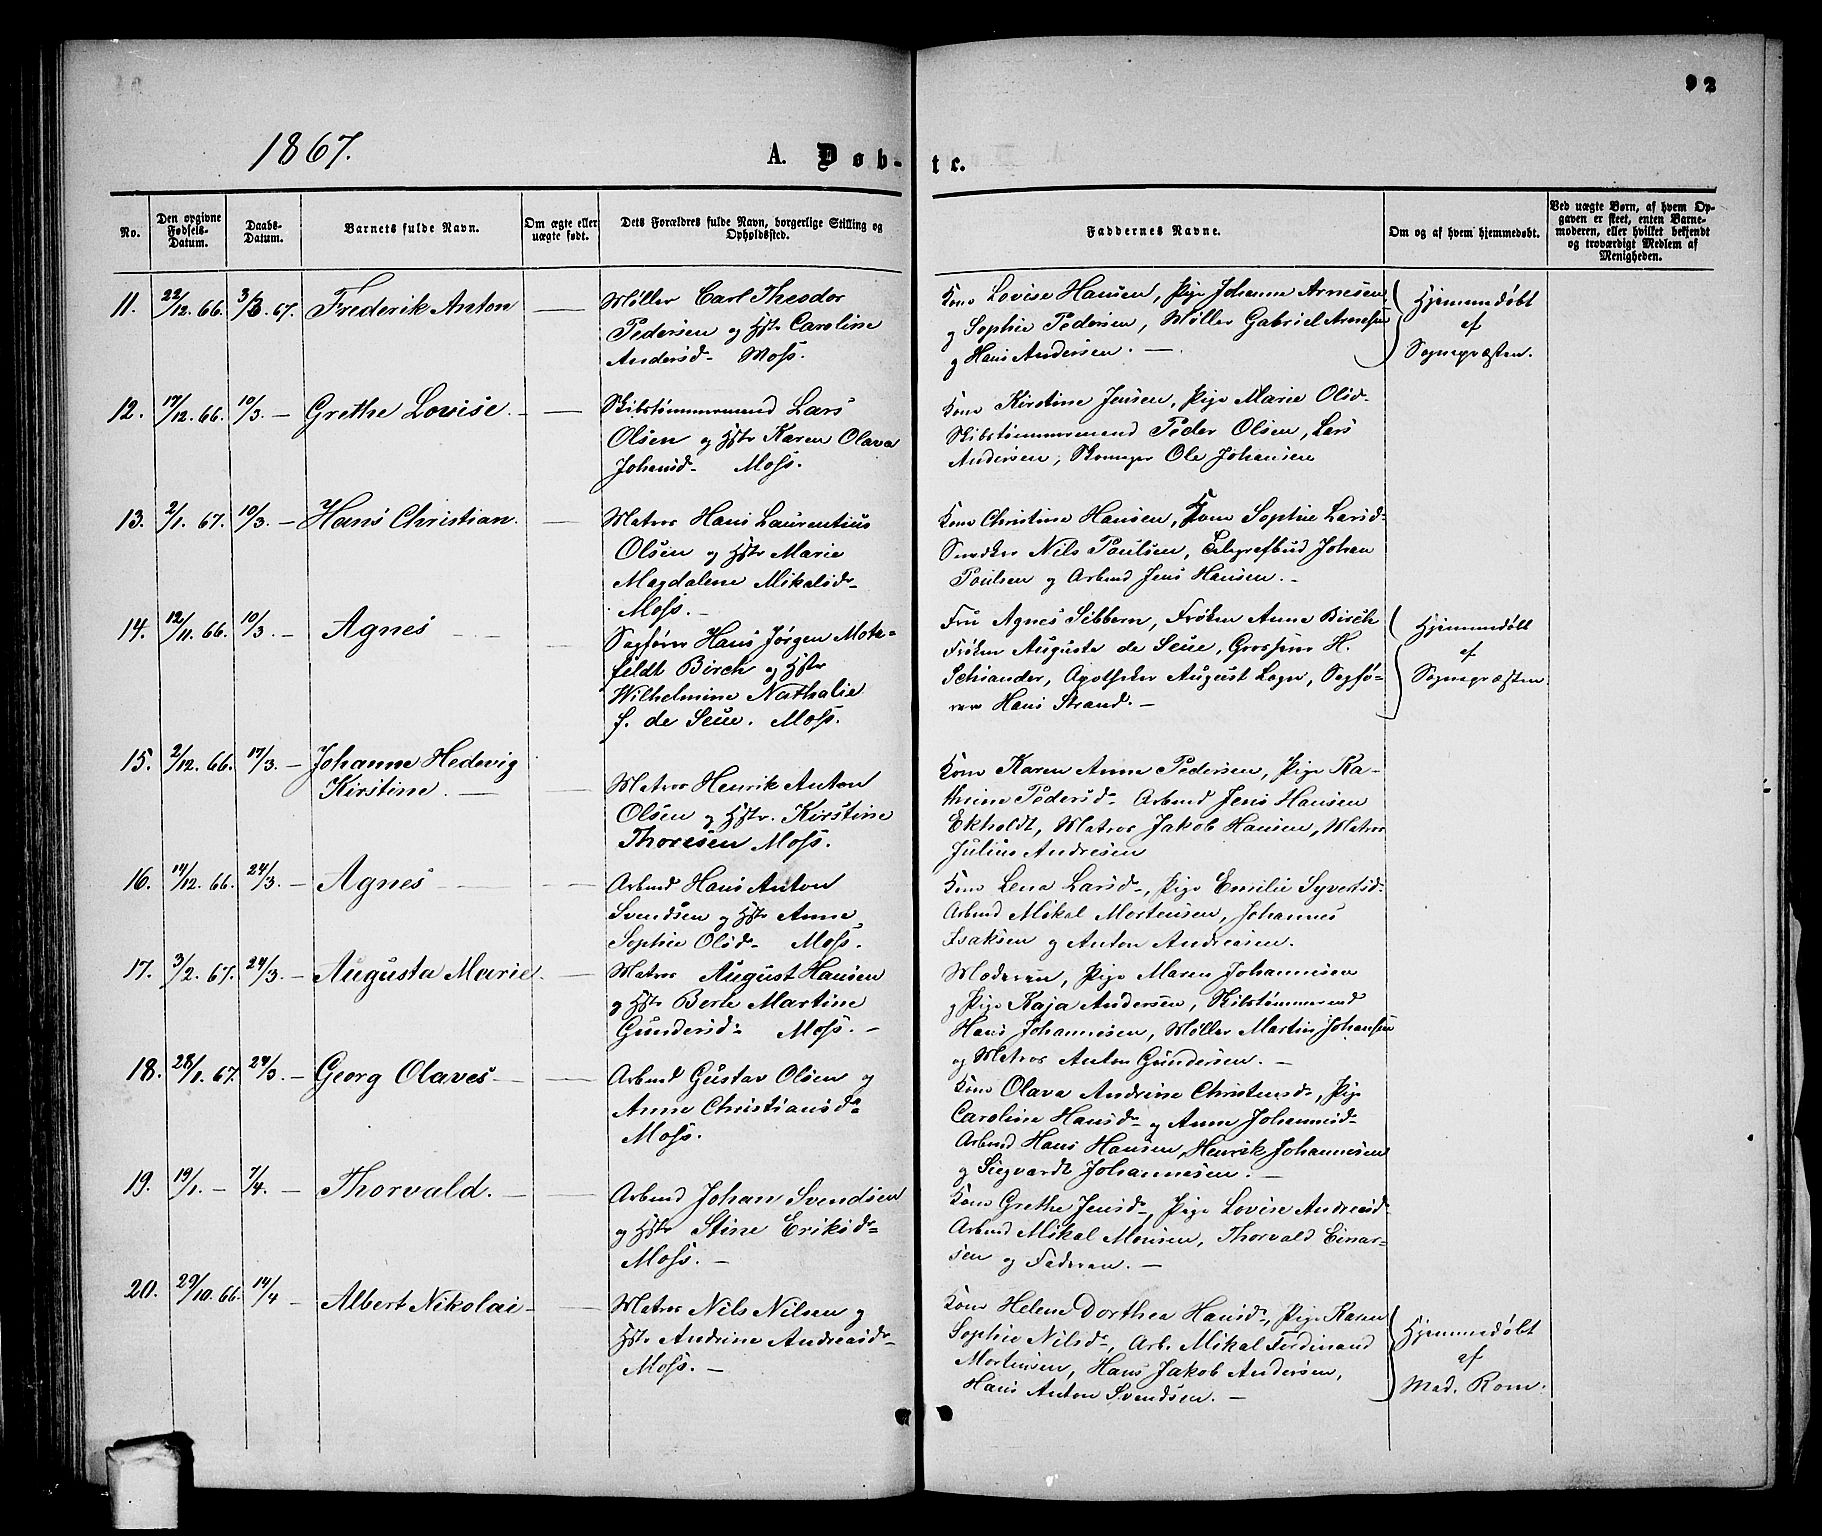 92
1867.
A. Døb-te.
No.
Den opgivne Fødsels-Datum.
Daabs-Datum.
Barnets fulde Navn.
Om ægte eller uægte født.
Dets Forældres fulde Navn, borgerlige Stilling og Opholdssted.
Faddernes Navne.
Om og af hvem hjemmedøbt.
Ved uægte Børn, af hvem Opgaven er skeet, enten Barnemoderen, eller hvilket bekjendt og troværdigt Medlem af Menigheden.
11. 22/12. 66. 3/3. 67. Frederik Anton —
Møller Carl Theodor
Pedersen og Hstr Caroline
Andersd- Moss.
Kone Lovise Hansen, Pige Johanne Arnesen
og Sophie Pedersen, Møller Gabriel Arnesen
og Hans Andersen. —
Hjemmedøbt
af
Sognepræsten.
12. 17/12. 66. 10/3. — Grethe Lovise. —
Skibstømmermand Lars
Olsen og Hstr Karen Olava
Johansd- Moss.
Kone Kirstine Jensen, Pige Marie Olsd-
Skibstømmermand Peder Olsen, Lars
Andersen, Ole Johansen
13. 2/1. 67. 10/3. — Hans Christian. —
Matros Hans Laurentius
Olsen og Hstr Marie
Magdalene Mikalsd-
Moss. —
Kone Christine Hansen, Kone Sophie Larsd-
Snedker Nils Poulsen, Telegrafbud Johan
Poulsen og Arbmd Jens Hansen. —
14. 12/11. 66. 10/3. — Agnes — —
Sagfører Hans Jørgen Mote-
feldt Birch og Hstr
Wilhelmine Nathalie
f. de Seue. Moss.
Fru Agnes Sibbern, Frøken Anna Birch
Frøken Augusta de Seue, Grosserer H.
Schiander, Apotheker August Lagn, Sagfø-
rer Hans Strand. —
Hjemmedøbt
af
Sognepræsten.
15. 2/12. 66. 17/3. — Johanne Hedevig
Kirstine. — —
Matros Henrik Anton
Olsen og Hstr. Kirstine
Thoresen Moss.
Kone Karen Anne Pedersen, Pige Ka-
thrine Pedersd- Arbmd Jens Hansen
Ekholdt, Matros Jakob Hansen, Matros
Julius Andresen
16. 14/12. 66. 24/3. — Agnes — —
Arbmd Hans Anton
Svendsen og Hstr Anne
Sophie Olsd- Moss.
Kone Lena Larsd-, Pige Emilie Syvertsd-
Arbmd Mikal Mortensen, Johannes
Isaksen og Anton Andreasen.
17. 3/2. 67. 24/3. — Augusta Marie. —
Matros August Hansen
og Hstr Berte Martine
Gundersd- Moss. —
Moderen, Pige Maren Johannesen
og Pige Kaja Andersen, Skibstømmermd
Hans Johannesen, Møller Martin Johansen
og Matros Anton Gundersen. —
18. 28/1. 67. 24/3. — Georg Olaves — —
Arbmd Gustav Olsen og
Anne Christiansd-
Moss.
Kone Olava Andrine Christensd-, Pige
Caroline Hansd- og Anne Johannesd-
Arbmd Hans Hansen, Henrik Johannesen
og Siegvardt Johannesen. —
19. 19/1. — 7/4. — Thorvald. — —
Arbmd Johan Svendsen
og Hstr Stine Eriksd-
Moss. —
Kone Grethe Jensd-, Pige Lovise Andreasd-
Arbmd Mikal Monsen, Thorvald Einar-
sen og Faderen. —
20. 29/10. 66. 14/4 — Albert Nikolai — —
Matros Nils Nilsen og
Hstr Andrine Andreasd-
Moss. —
Kone Helene Dorthea Hansd-, Pige Karen
Sophie Nilsd-, Arb. Mikal Ferdinand
Mortensen, Hans Jakob Andersen,
Hans Anton Svendsen. —
Hjemmedøbt
af
Mad. Rom.